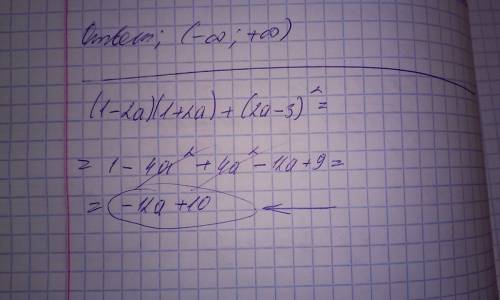 Ответ; (-∞; +∞)
(1-2a)(1+2a)+(2a-3)²=
= 1-4a²+4a²-12a+9=
= -12a+10